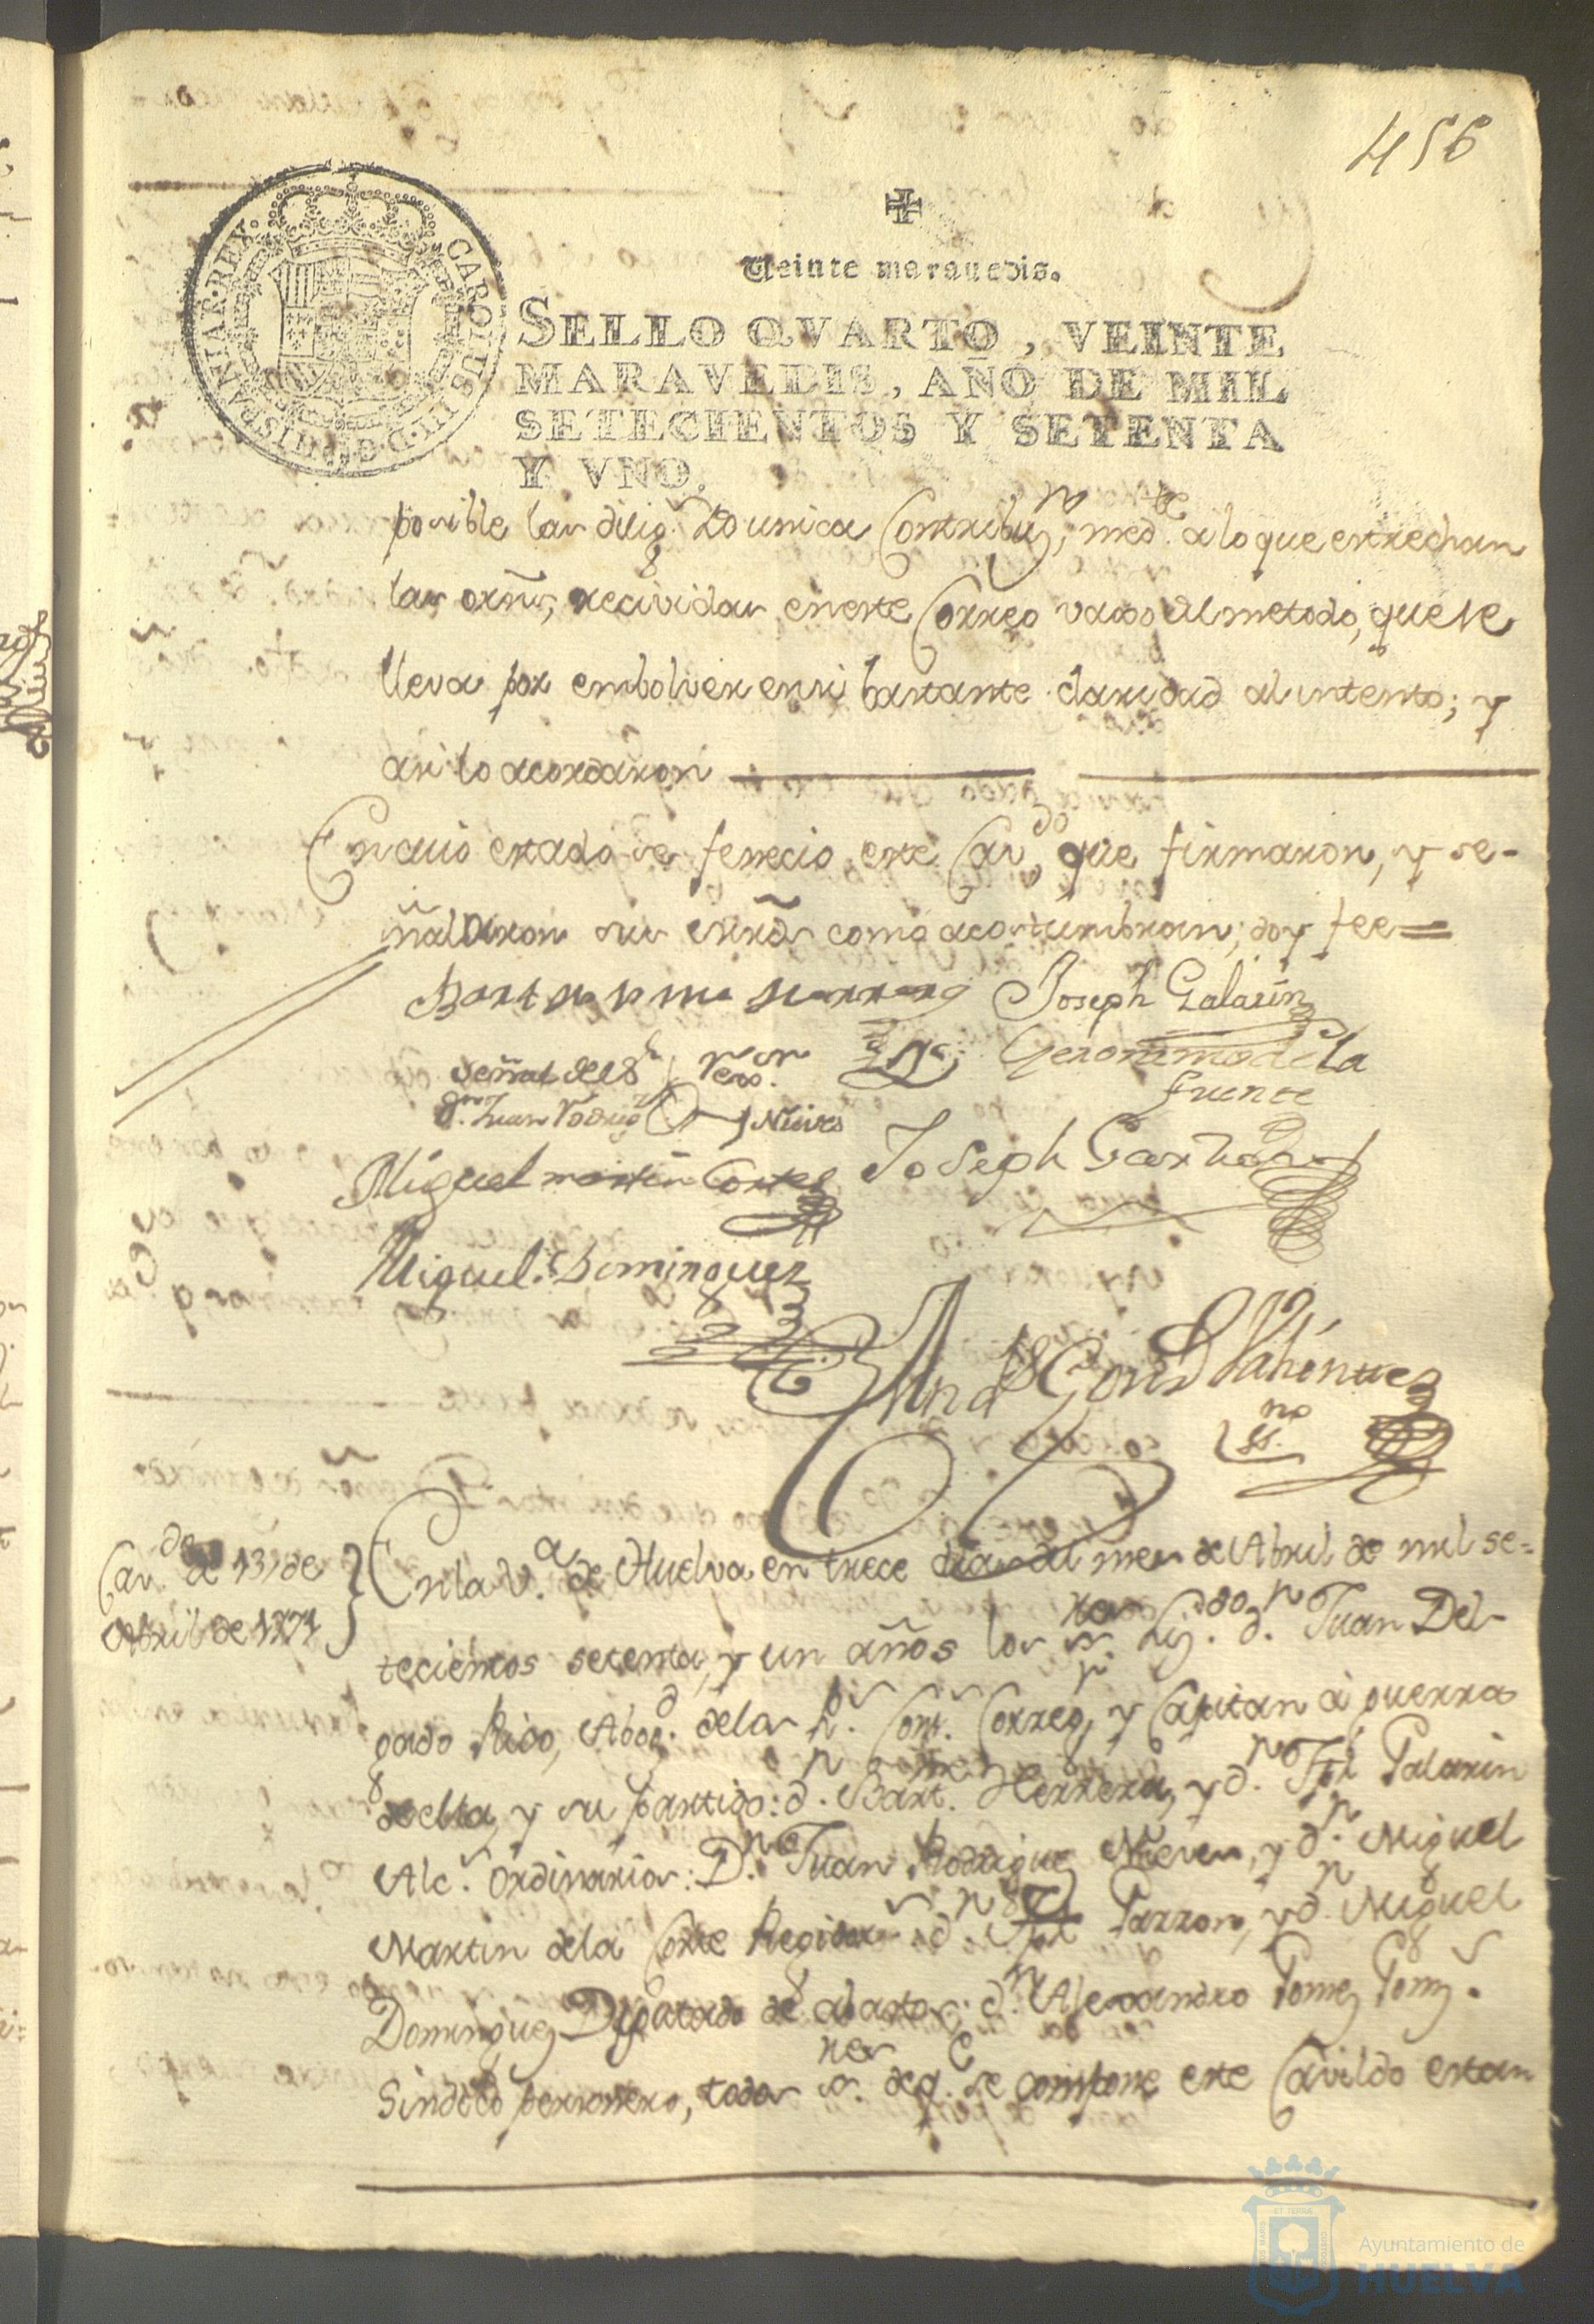 456
Veinte maravedis.
SELLO QVARTO, VEINTE
MARAVEDIS, AÑO DE MIL
SETECIENTOS Y SETENTA
Y VNO.
CAROLUS III D. G. HISPANIAR. REX.
posible las dilig.s de unica Contribuz.n, med.te a lo que estrechan
las orñs, recividas en este Correo vaxo del metodo, que se
lleva por embolver en si bastante claridad al intento; y
asi lo acordaron
En cuio estado se fenecio este Cav.do que firmaron, y se-
ñalaron sus mrds como acostumbran; doy fee=
Bartolome Herrera Joseph Galarin
Señal del S.r Rexor.
Dn. Juan Rodrig.z Nieves
Geronimo de la
fuente
Miguel martin Cortes Joseph Garzon
Miguel Dominguez
And.s Gonz Valiente
ss.no
Cav.do de 13, de
Abril de 1771
En la V.a de Huelva en trece dias del mes de Abril de mil se=
tecientos setenta, y un años los s.res Liz.do d.n Juan Del-
gado Rico, Abog.d de los R.s Cons.s Correg.r, y Capitan â guerra
de ella, y su partido: d.n Bart.me Herrera, y d.n Jph Galarin
Alc.s ordinarios: D.n Juan Rodriguez Nieves, y d.n Miguel
Martin de la Corte Regidores d.n Jph Garzon, y d.n Miguel
Dominguez Diputado de abastos: d.n Alexandro Gomez
Sindico personero, todos s.res de q.e se compone este Cavildo estan
Ayuntamiento de
HUELVA